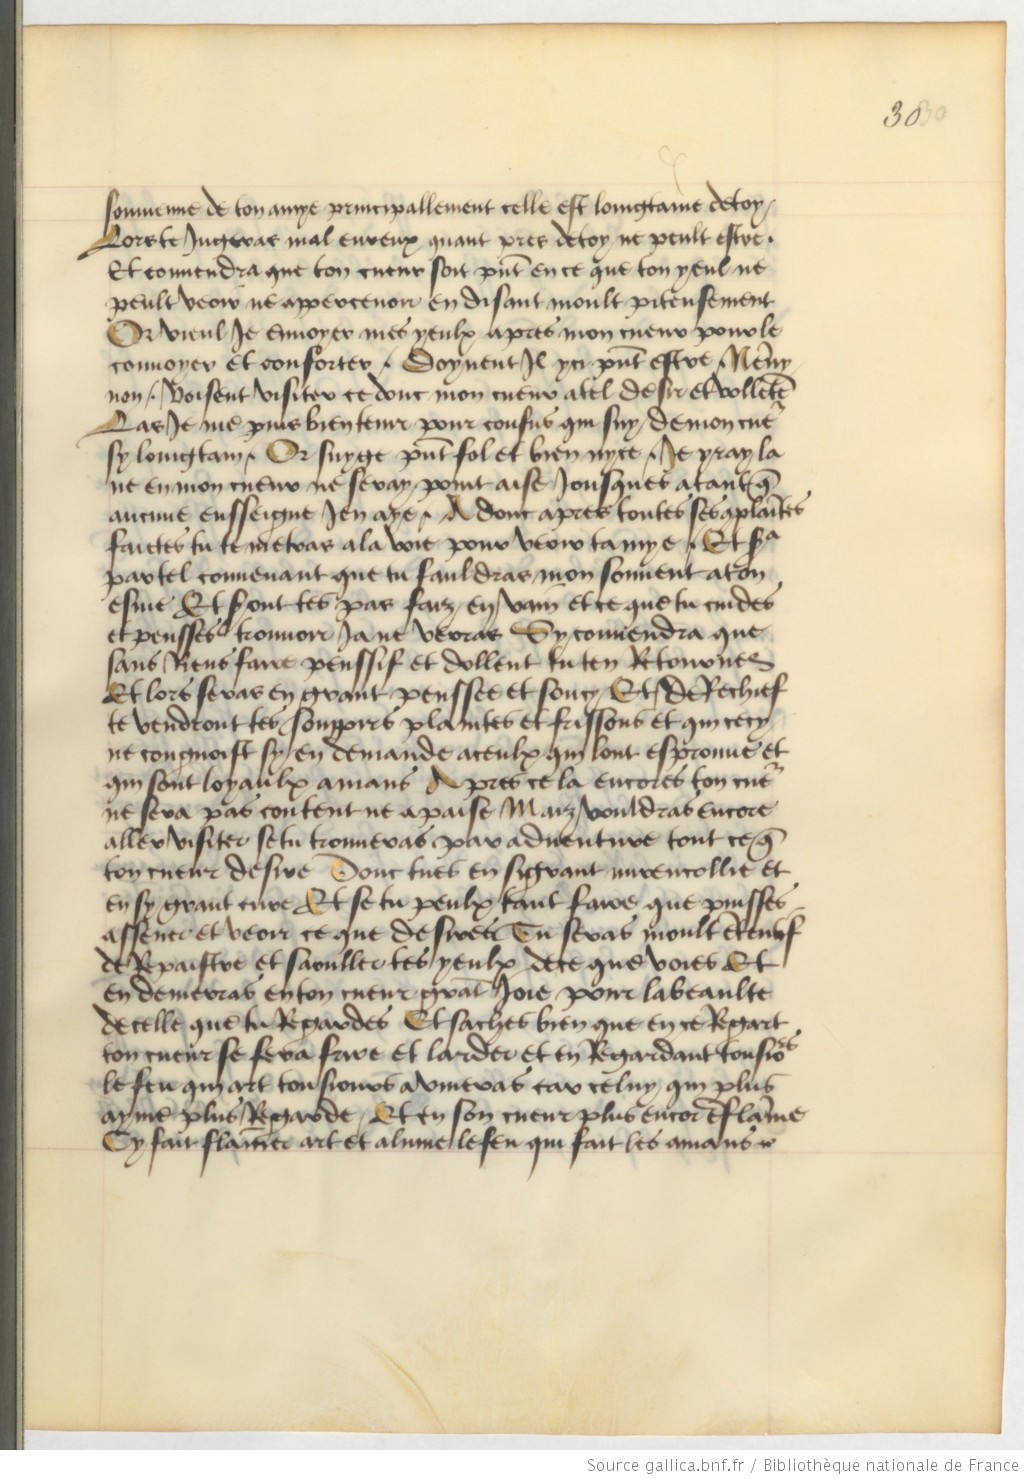 30 30
souuenne de ton amye principallement celle est loingtaine de toy /
Lors te Jugeras mal eureux quant pres de toy ne peult estre .
Et conuendra que ton cueur soit pnt en ce que ton yeul ne
peult veoir ne apperceuoir en disant moult piteusement
Or vieul Je enuoyer mes yeulx apres mon cueur pour le
conuoyer et conforter . Doyuent Il yci pnt estre . Neny
non / . Voisent visiter ce donc mon cueur a tel desir et vollete
Las Je me puis bien tenir pour confus qui suy / de mon cue
sy loingtain . Or suy ge pnt fol et bien nyce . Je y ray la
ne en mon cueur ne seray point aise Jousques a tant q
aucune ensseigne Jen aye . A donc apres toutes ses aplaites
faictes tu te metras a la voie pour veoir ta mye . Et sa
par tel conuenant que tu fauldras mon souuent a ton
esme Et sont tes pas faiz en vain et ce que tu cuides
et pensses trouuoir Ja ne verras Sy conuendra que
sans Riens faire penssif et dollent tu ten Retournes
Et lors seras en grant penssee et soucy Et De Rechief
te vendront tes souppirs plaintes et frissons et qui cecy
ne congnoist sy en demande a ceulx qui lont esprouue et
qui sont loyaulx amans A pres ce la encores ton cue
ne sera pas content ne apaise Maiz vouldras encore
aller visiter se tu trouueras par aduenture tout ce q
ton cueur desire Donc tu es en si grant mirencollie et
en sy grant cure Et se tu peulx tant faire que puisses
assener et veoir ce que desires Tu seras moult
de Repaistre et saouller tes yeulx de ce que voies Et
en demerras en ton cueur grat Joie pour la beaulte
de celle que tu Regardes Et saches bien que en ce Regart
ton cueur se fera frire et larder et en Regardant tousiors
le feu qui art tousiours auiueras car celuy qui plus
ayme plus Regarde . Et en son cueur plus encor eflame
Cy fait flamer art et alume le feu qui fait les amans
Source gallica.bnf.fr / Bibliothèque nationale de France